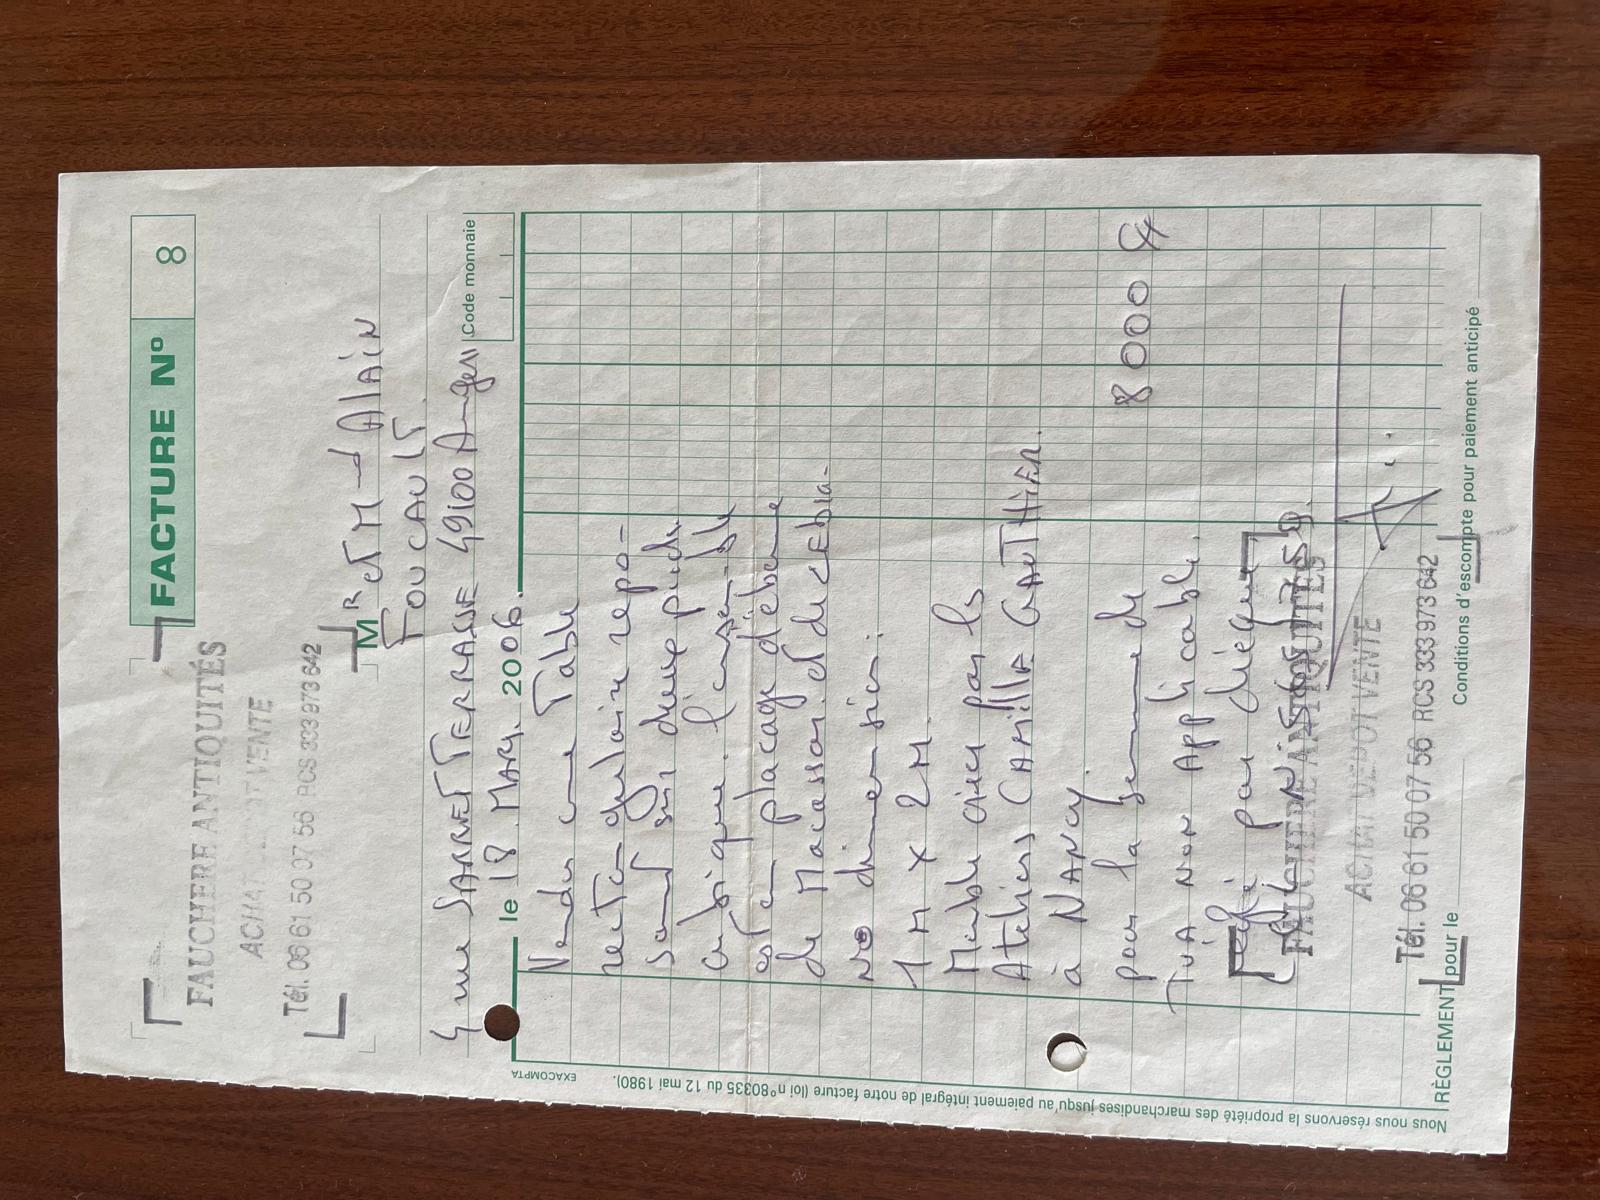 FACTURE N° 8
FAUCHERE ANTIQUITÉS
ACHAT VENTE
Tél. 06 61 50 07 56 RCS 333 973 642
Mr et M-d Alain
FOUCAULT.
4 rue SARRET TERRASSE 49100 Angers
Code monnaie
le 18. MARS. 2006.
Vendu une Table
rectangulaire repo-
sant sur deux pieds
l'ensemble
est en placage d'ébène
de Macassar. et de
dimension:
1 M X 2 M.
Meuble par les
Ateliers CAMILLE GAUTHIER.
à NANCY.
pour la somme de 8000 €
TVA NON Applicable.
réglé par chèque
FAUCHERE ANTIQUITÉS
ACHAT DÉPOT VENTE
Tél. 06 61 50 07 56 RCS 333 973 642
RÈGLEMENT pour le
Conditions d'escompte pour paiement anticipé
EXACOMPTA
Nous nous réservons la propriété des marchandises jusqu'au paiement intégral de notre facture (loi n° 80335 du 12 mai 1980).